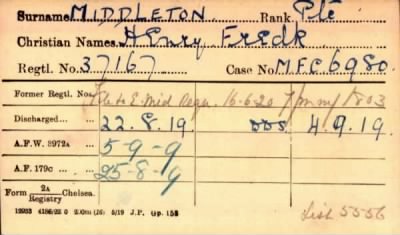 Surname MIDDLETON. Rank Pte
Christian Names Henry Fredk
Regtl. No. 37167 Case No. MFC 6980.
Former Regtl. No. 16-6-20
Discharged 22.8.19. DOS 4.9.19.
A.F.W. 3972A 5-9-9
A.F. 179C 25-8-9
Form 2A Registry Chelsea.
12933 4186/22 0 200m (26) 5/19 J.P. Gp. 153
List 5556